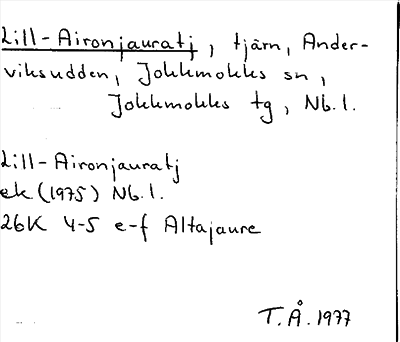 Lill-Aironjauratj, tjärn, Ander-
viksudden, Jokkmokks sn,
Jokkmokks tg, Nb.l.
Lill-Aironjauratj
ek (1975) Nb.l.
26K 4-5 e-f Altajaure
T.Å. 1977